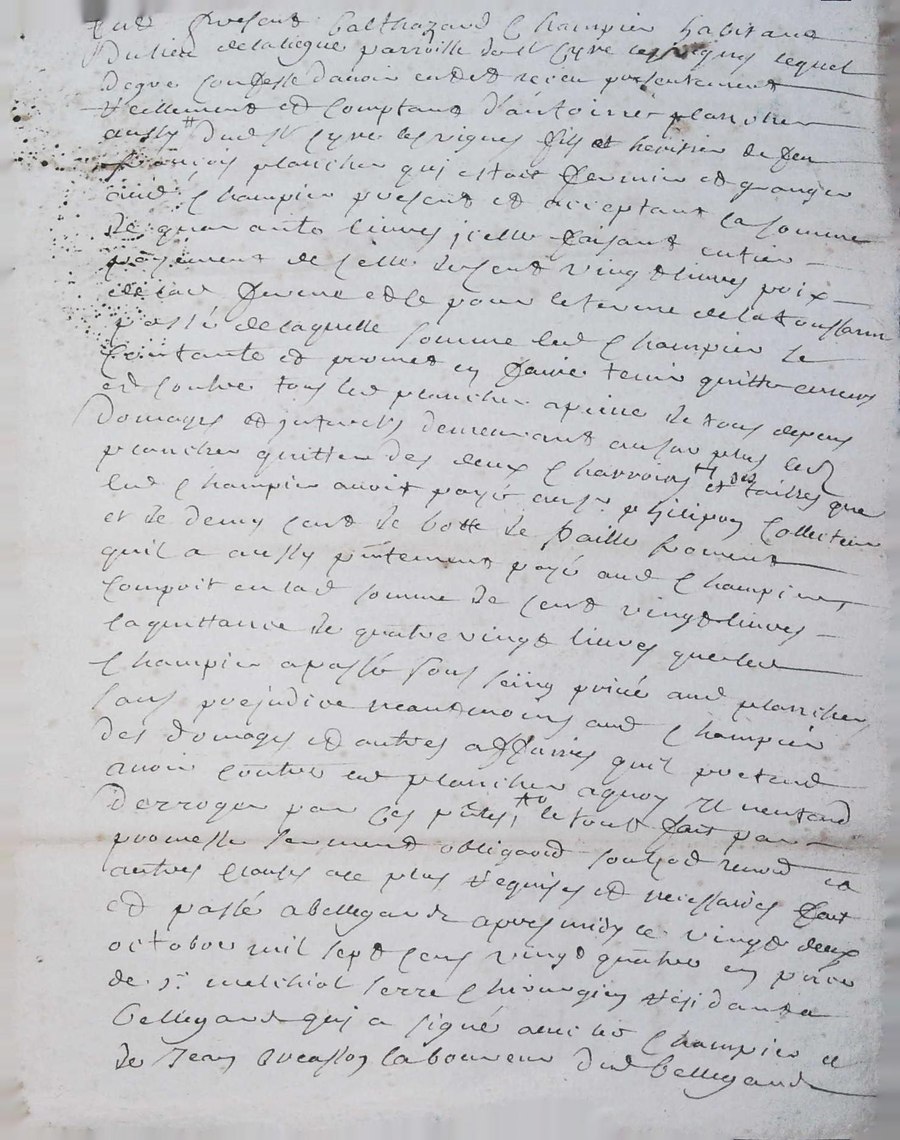 present Balthazard Champier habitant
du lieu de la ligue parroisse de St Cyre les vignes lequel
de gre confesse d'avoir end receu presentement
reellement et comptant d'antoine plancher
aussy # dud St Cyre les vignes fils et heritier de feu
françois plancher qui estoit fermier et granger
aud Champier present et acceptant la somme
de quarante livres jcelle faisant entier
payement de celle de cent vingt livres prix
de lad ferme et le pour le terme de la toussain
passé de laquelle somme led Champier se
contante et promet en faire tenir quitte envers
et contre tous led plancher a peine de tous depens
domages et interets demeurant au surplus led
plancher quitte des deux charrois et des tailles que
led Champier avoit payé au Sr philipon Collecteur
et de demy cent de botte de paille froment
quil a aussy pntement payé aud Champier
compris en lad somme de cent vingt livres
la quittance de quatre vingt livres que led
Champier a passé sous seing privé aud plancher
sans prejudice neantmoins aud Champier
des domages et autres affaires quil pretend
avoir contre led plancher a quoy Il nentend
derroger par ces pntes, le tout fait par
promesse serment obligaõn soubzõn renõn et
autres clauses plus requises et necessaires fait
et passé a bellegarde apres midy ce vingt deux
octobre mil sept cens vingt quatre en pnce
de Sr melchiol serre Chirurgien residant a
bellegarde qui a signé avec led Champier et
de Jean laboureur dud bellegarde